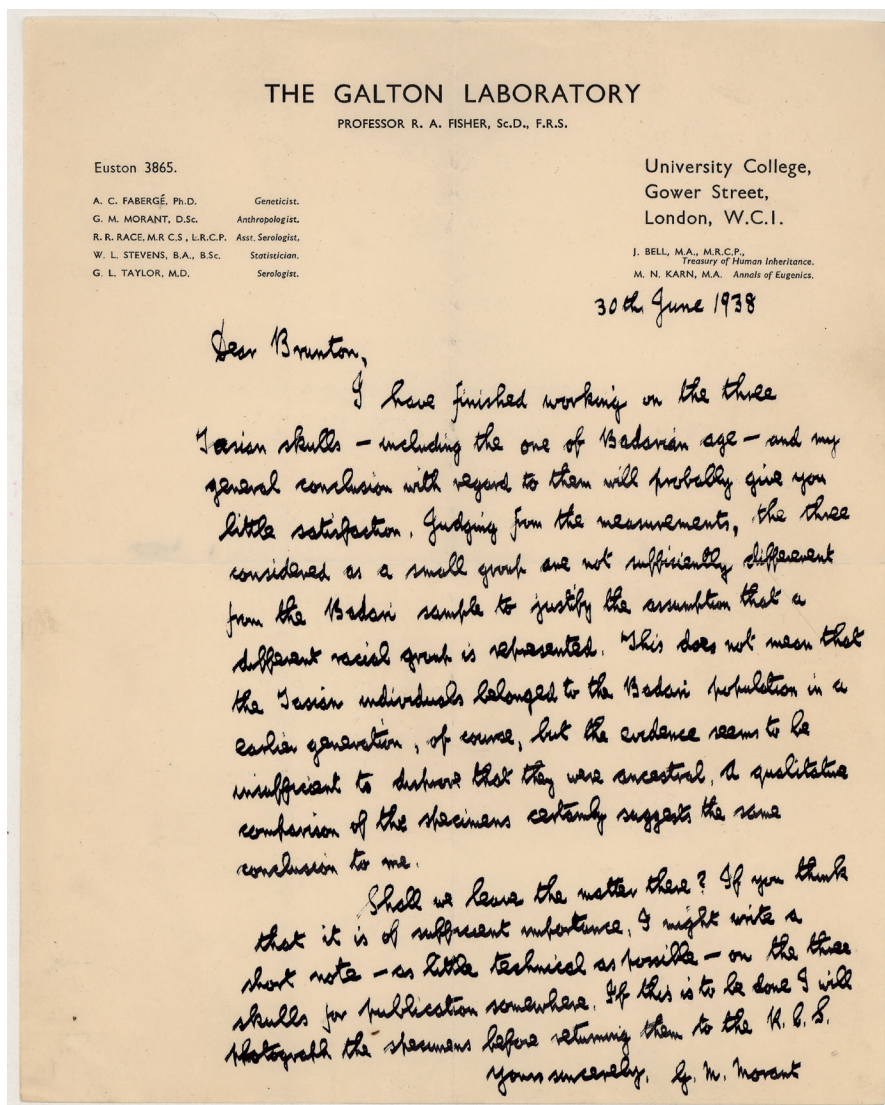 THE GALTON LABORATORY
PROFESSOR R. A. FISHER, Sc.D., F.R.S.
Euston 3865.
A. C. FABERGÉ, Ph.D. Geneticist.
G. M. MORANT, D.Sc. Anthropologist.
R. R. RACE, M.R C.S., L.R.C.P. Asst. Serologist,
W. L. STEVENS, B.A., B.Sc. Statistician.
G. L. TAYLOR, M.D. Serologist.
University College,
Gower Street,
London, W.C.1.
J. BELL, M.A., M.R.C.P.,
Treasury of Human Inheritance.
M. N. KARN, M.A. Annals of Eugenics.
30th June 1938
Dear Brunton,
I have finished working on the three
Tasian skulls – including the one of Badarian age – and my
general conclusion with regard to them will probably give you
little satisfaction. Judging from the measurements, the three
considered as a small group are not sufficiently different
from the Badari sample to justify the assumption that a
different racial group is represented. This does not mean that
the Tasian individuals belonged to the Badari population in a
earlier generation, of course, but the evidence seems to be
insufficient to disprove that they were ancestral. A qualitative
comparison of the specimens certainly suggests the same
conclusion to me.
Shall we leave the matter there? If you think
that it is of sufficient importance, I might write a
short note – as little technical as possible – on the three
skulls for publication somewhere. If this is to be done I will
photograph the specimens before returning them to the R.C.S.
Yours sincerely, G. M. Morant